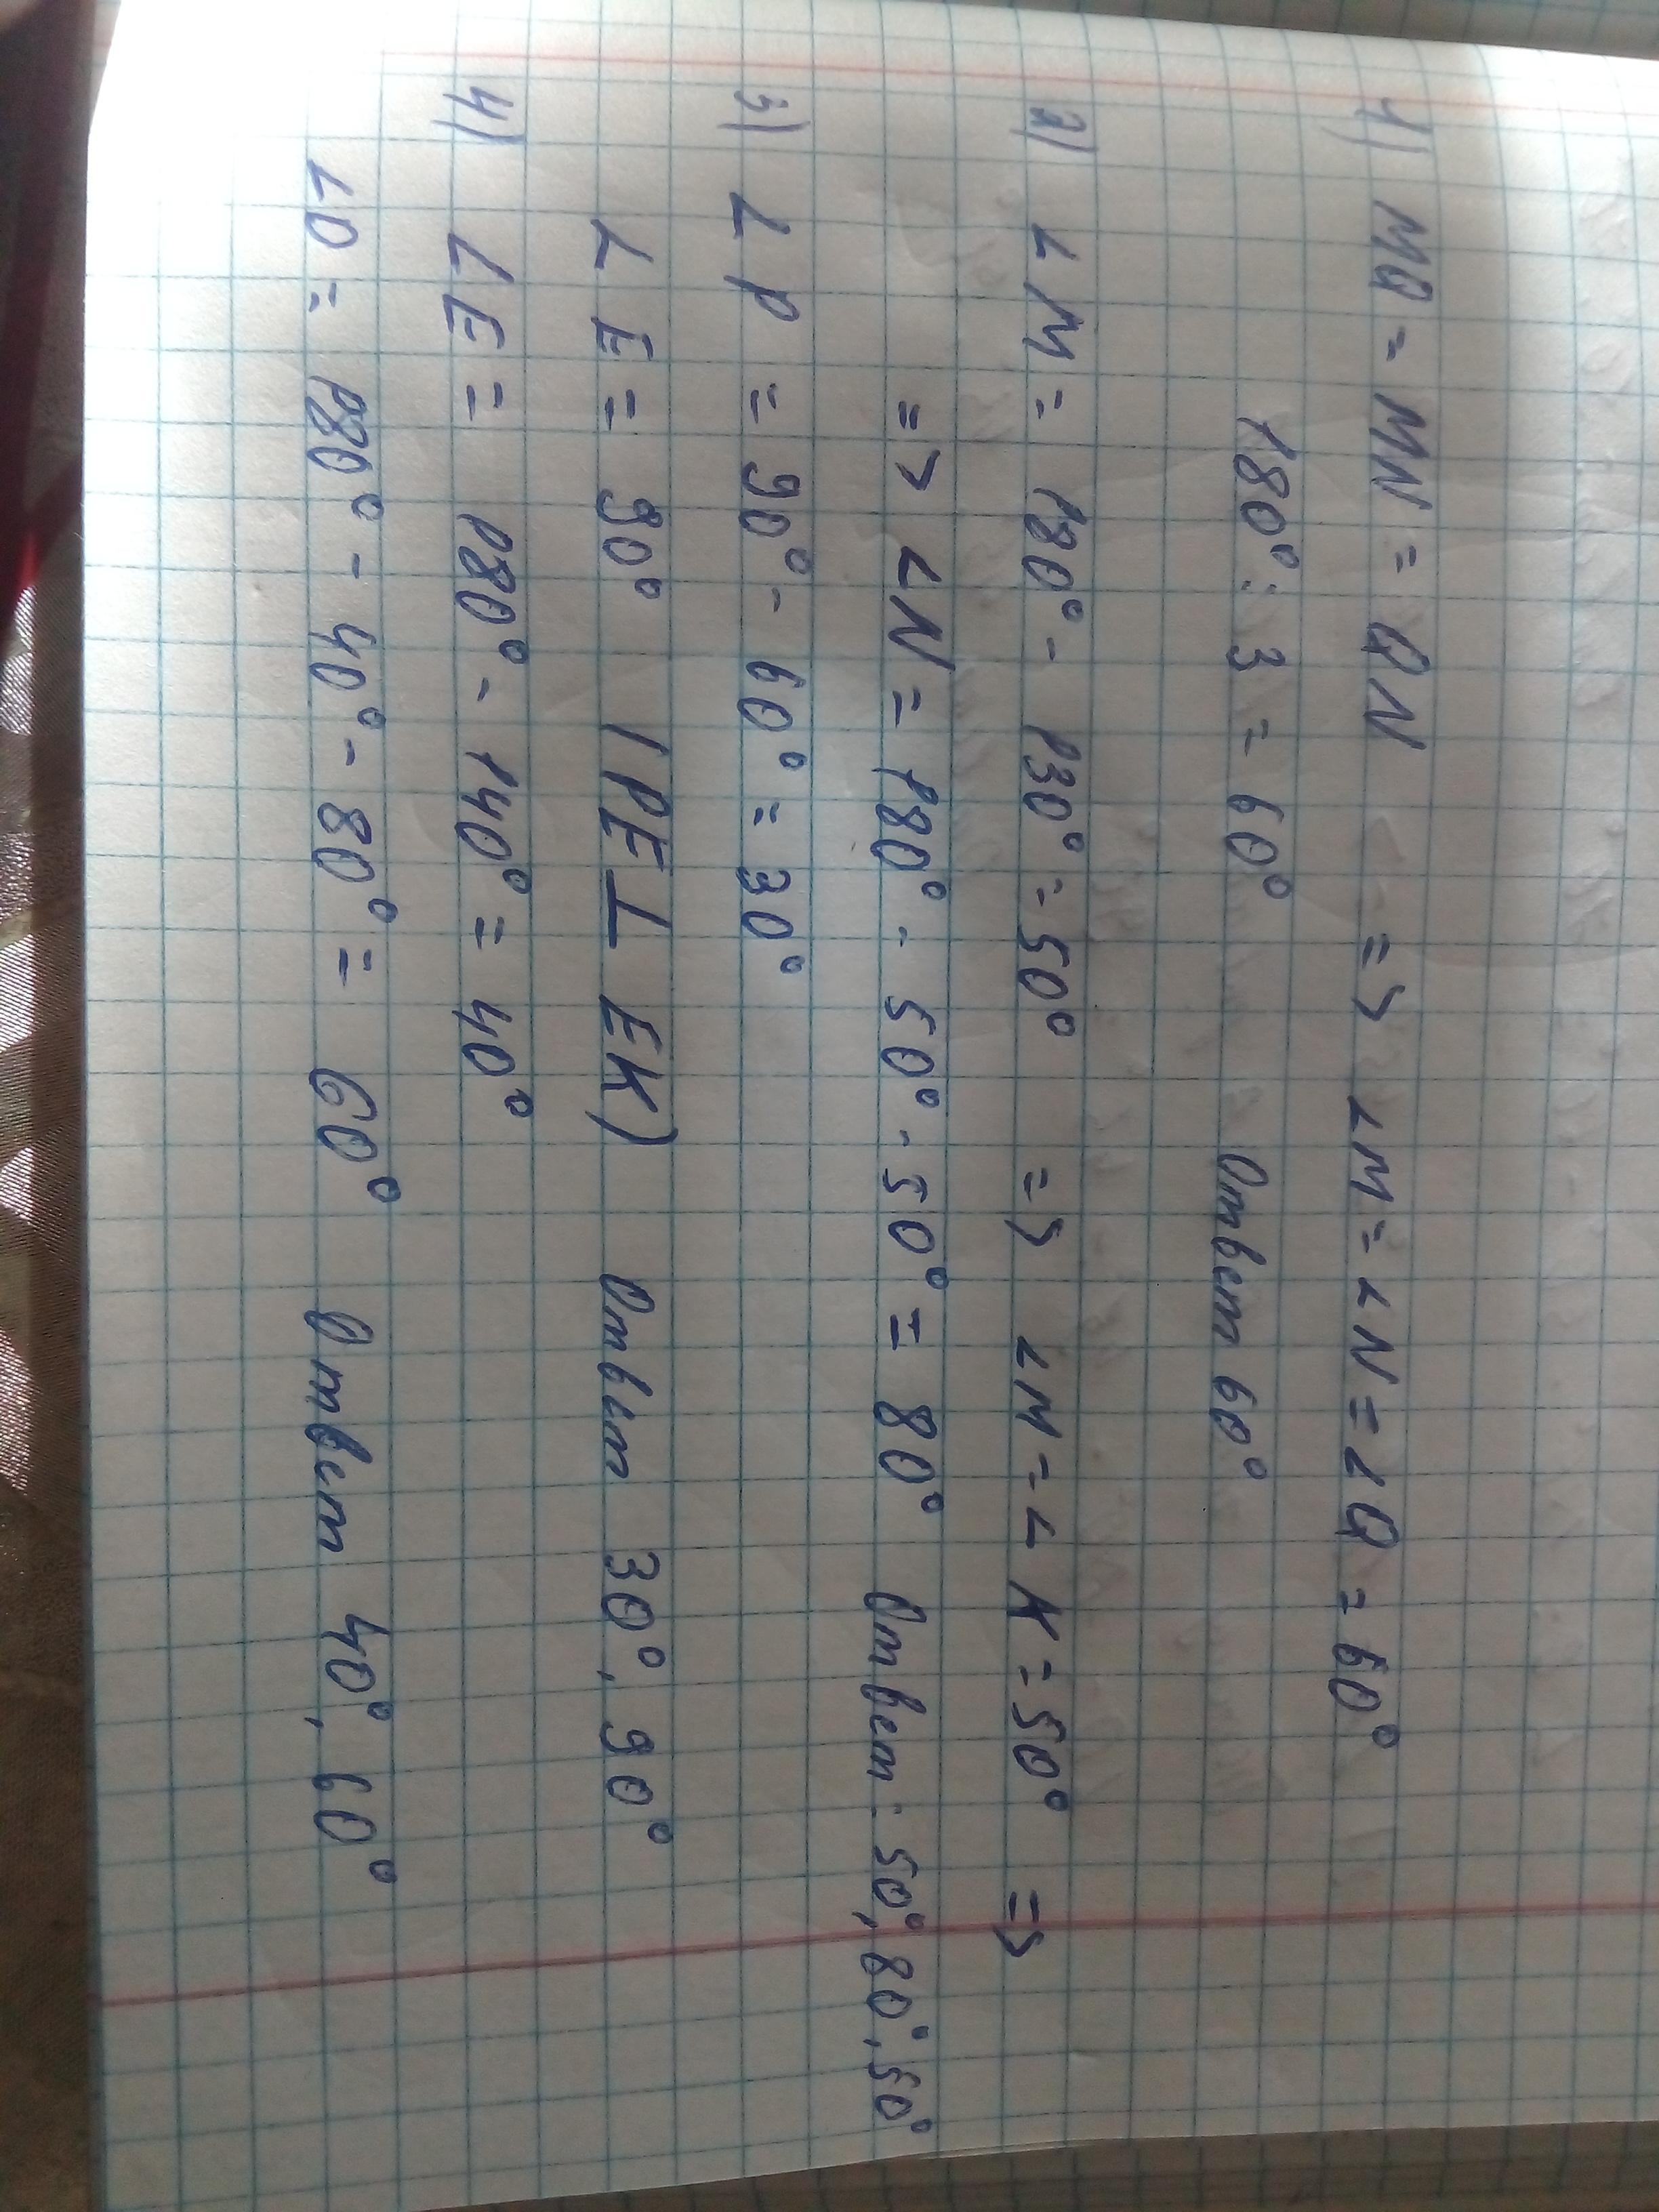 1) MQ = MN = QN => ∠M = ∠N = ∠Q = 60°
180° : 3 = 60° Ответ 60°
2) ∠M = 180° - 130° = 50° => ∠M = ∠K = 50° =>
=> ∠N = 180° - 50° - 50° = 80° Ответ: 50°, 80°, 50°
3) ∠P = 90° - 60° = 30°
∠E = 90° (PE ⊥ EK) Ответ 30°, 90°
4) ∠E = 180° - 140° = 40°
∠O = 180° - 40° - 80° = 60° Ответ 40°, 60°